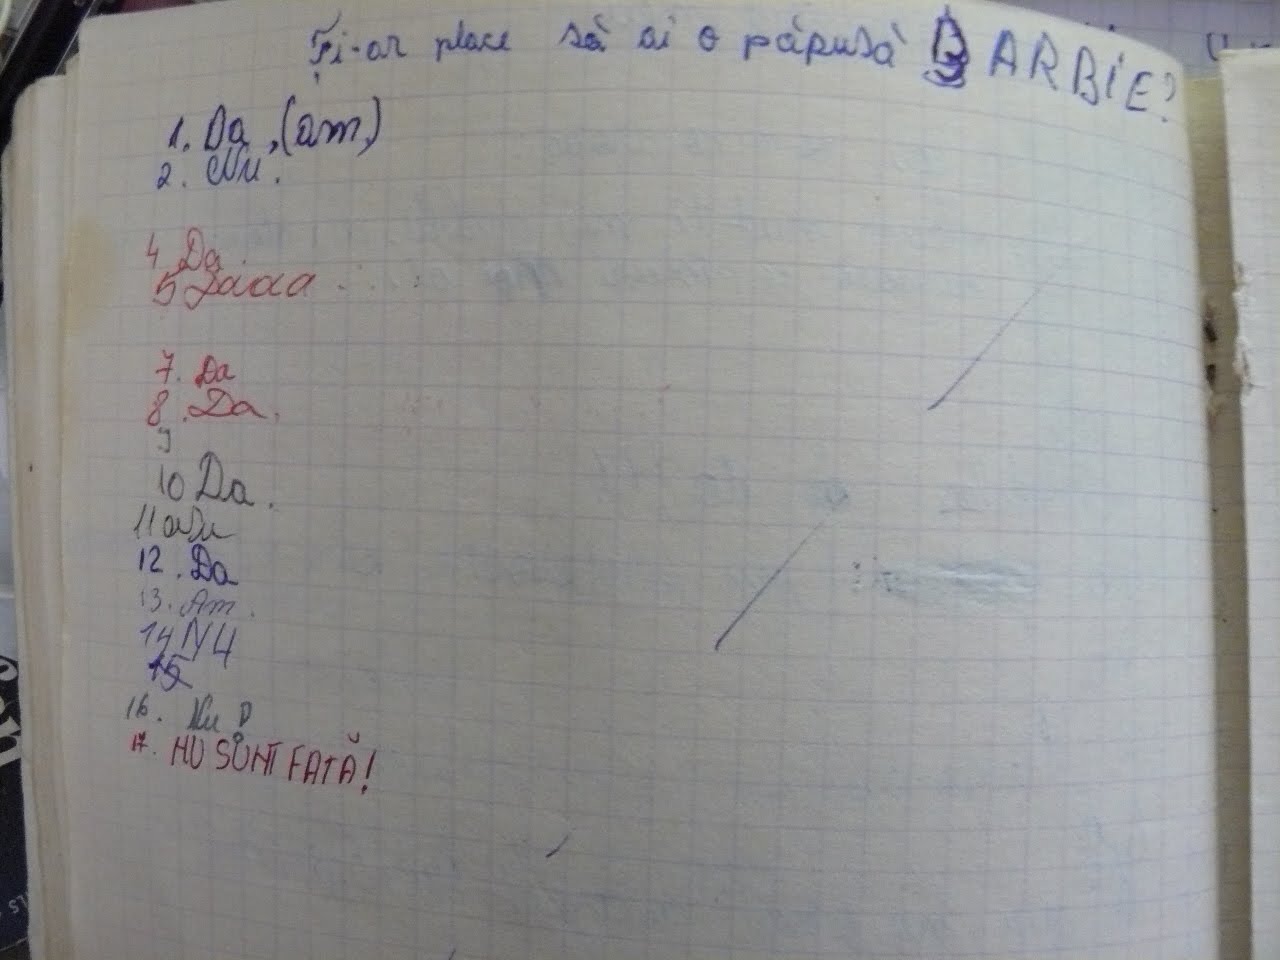 Ți-ar place să ai o păpusă BARBIE?
1. Da, (am)
2. Nu.
4 Da.
5 Daaaa...
7. Da
8. Da.
9
10 Da.
11 Nu
12. Da
13. Am.
14 NU
15
16. Nu!
17. NU SUNT FATĂ!